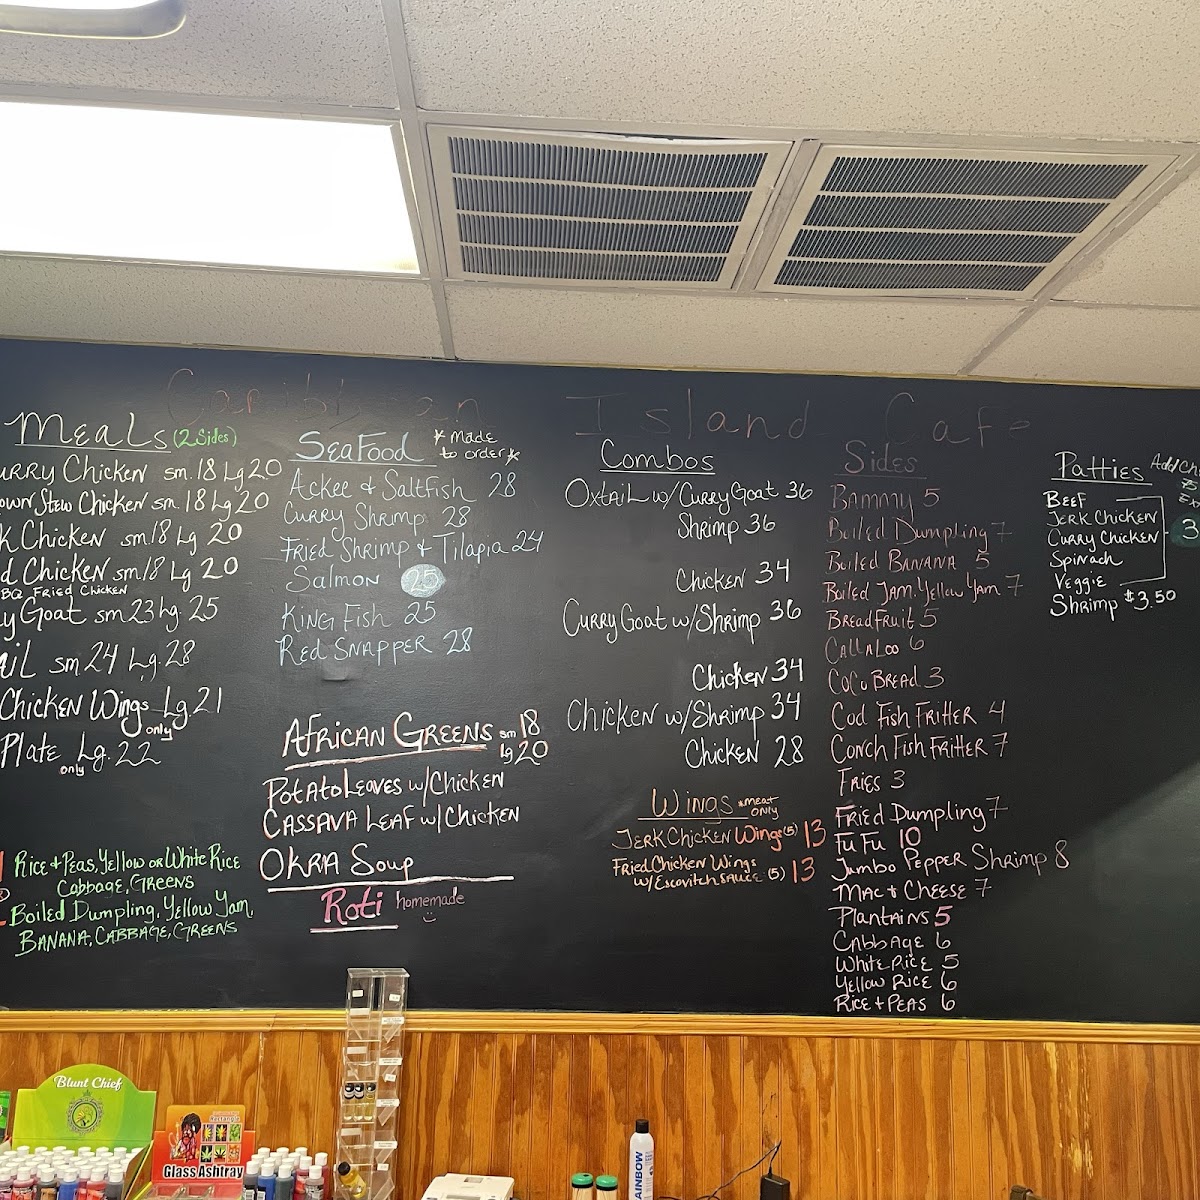 Caribbean Island Cafe
Meals (2 Sides)
urry Chicken sm. 18 Lg 20
own Stew Chicken sm. 18 Lg 20
k Chicken sm 18 Lg 20
d Chicken sm 18 Lg 20
BQ Fried Chicken
y Goat sm 23 Lg. 25
ail sm 24 Lg. 28
Chicken Wings Lg. 21
only
Plate Lg. 22
only
Rice + Peas, Yellow or White Rice
Cabbage, Greens
Boiled Dumpling, Yellow Yam,
Banana, Cabbage, Greens
SeaFood *made to order*
Ackee & Saltfish 28
Curry Shrimp 28
Fried Shrimp + Tilapia 24
Salmon 25
King Fish 25
Red Snapper 28
African Greens sm 18
Lg 20
Potato Leaves w/ Chicken
Cassava Leaf w/ Chicken
Okra Soup
Roti homemade
Combos
Oxtail w/ Curry Goat 36
Shrimp 36
Chicken 34
Curry Goat w/ Shrimp 36
Chicken 34
Chicken w/ Shrimp 34
Chicken 28
Wings *meat only
Jerk Chicken Wings (5) 13
Fried Chicken Wings
w/ Escovitch sauce (5) 13
Sides
Bammy 5
Boiled Dumpling 7
Boiled Banana 5
Boiled Jam. Yellow Yam 7
Breadfruit 5
Callaloo 6
CoCo Bread 3
Cod Fish Fritter 4
Conch Fish Fritter 7
Fries 3
Fried Dumpling 7
Fu Fu 10
Jumbo Pepper Shrimp 8
Mac & Cheese 7
Plantains 5
Cabbage 6
White Rice 5
Yellow Rice 6
Rice + Peas 6
Patties
Add Ch
Beef
Jerk Chicken
Curry Chicken
Spinach
Veggie
3
Shrimp $3.50
Blunt Chief
Rectangle
Glass Ashtray
AINBOW